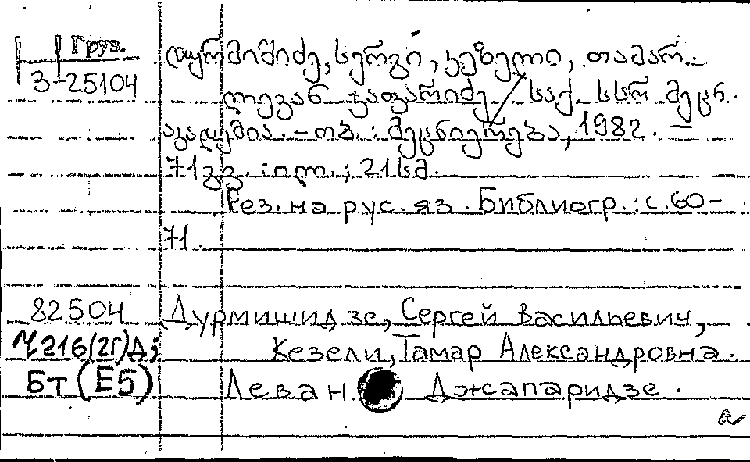 Груз.
3-25104
დურმიშიძე, სერგი, კეზელი, თამარ.
ლევან ჯაფარიძე / საქ. სსრ მეცნ.
აკადემია. - თბ. : მეცნიერება, 1982. -
71 გვ. : ილ. ; 21 სმ.
Рез. на рус. яз. Библиогр.: с. 60-
71.
82504 Дурмишидзе, Сергей Васильевич,
216(2Г)Д; Кезели, Тамар Александровна.
Бт (Е5) Леван Джапаридзе.